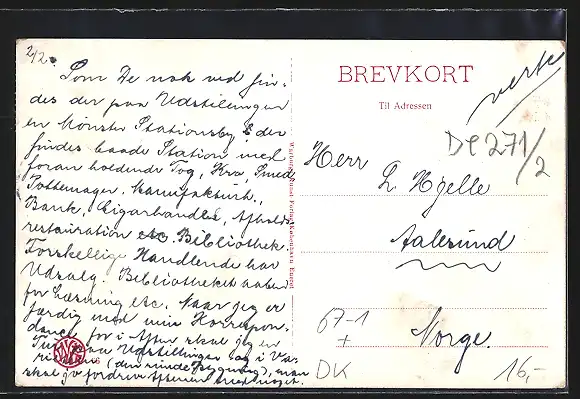 2/2.
Som De nok ved fin-
des der paa Udstillingen
en Mønster Stationsby & der
findes baade Station med
foran holdende Tog, Kro, Smed,
Pottemager, Manufakturh.,
Bank, Cigarhandler, Afholds-
restauration etc. Bibliothek.
Forskellige Handlende har
Udsalg. Bibliotheket aaben
for Læsning etc. Naar jeg er
færdig med min Korrespon-
dance for i Aften skal jeg en
Tur paa Udstillingen og i Va-
(den runde Bygning), man
skal jo fordrive Aftenen med noget.
BREVKORT
Til Adressen
Herr
L Hjelle
Aalesund
Norge
verte
DP271/2
67-1
+
DK
16,-